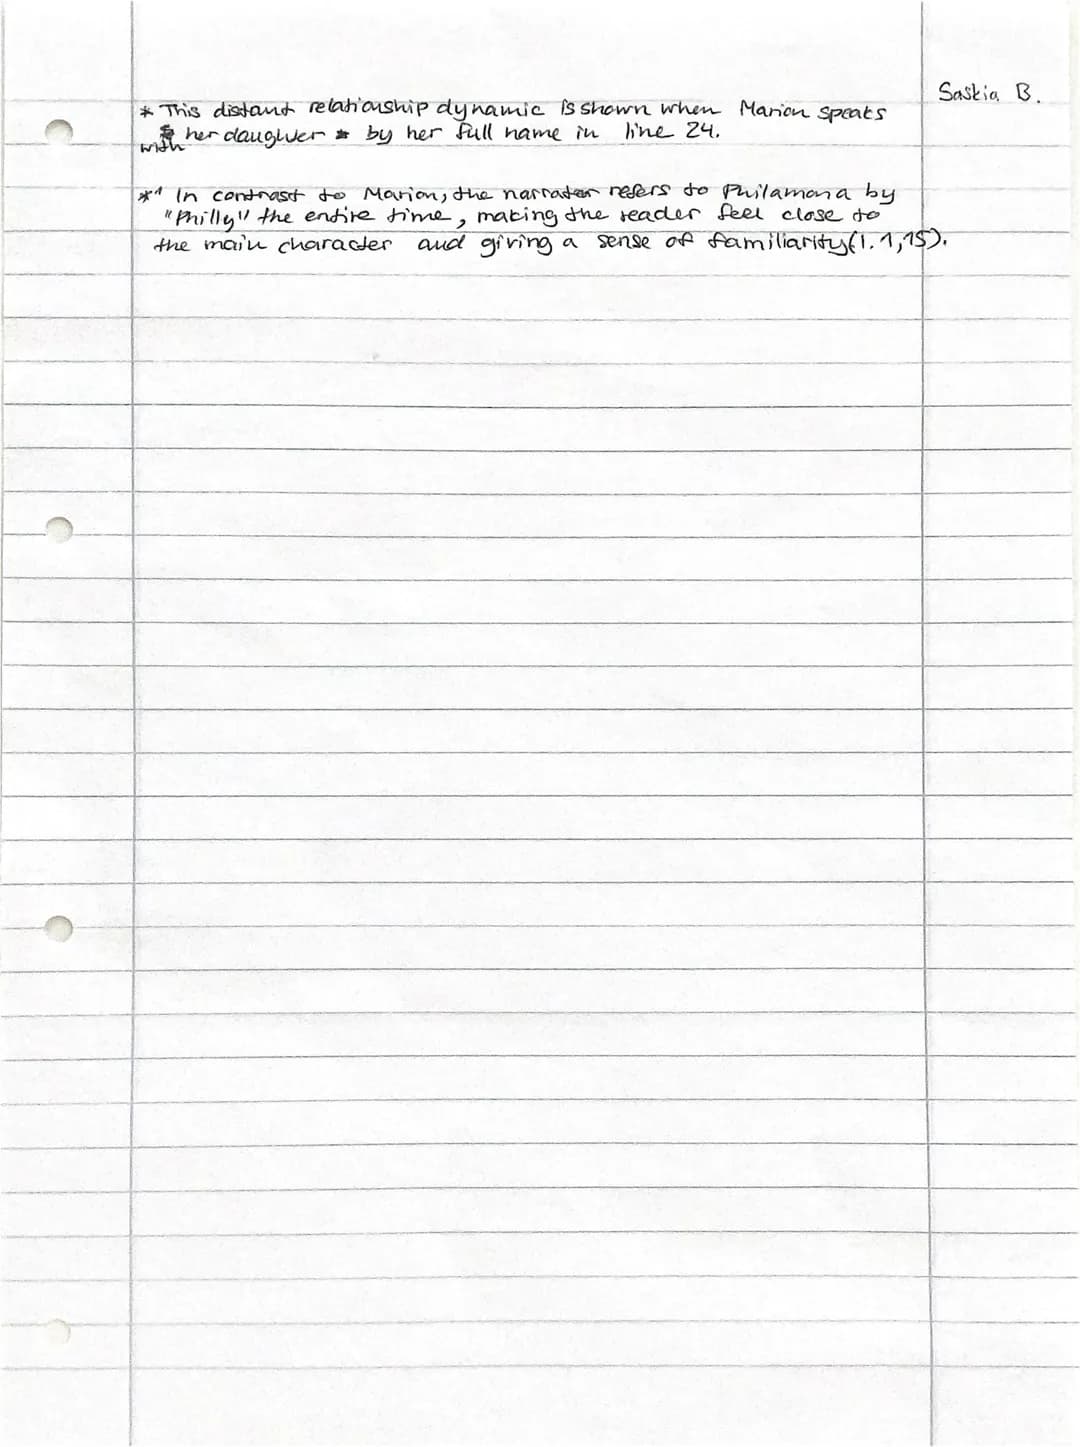 Saskia B.
* This distant relationship dynamic is shown when Marion speaks
with her daughter by her full name in line 24.
*¹ In contrast to Marion, the narrator refers to Philamona by
"Philly" the entire time, making the reader feel close to
the main character and giving a sense of familiarity (l. 1, 15).